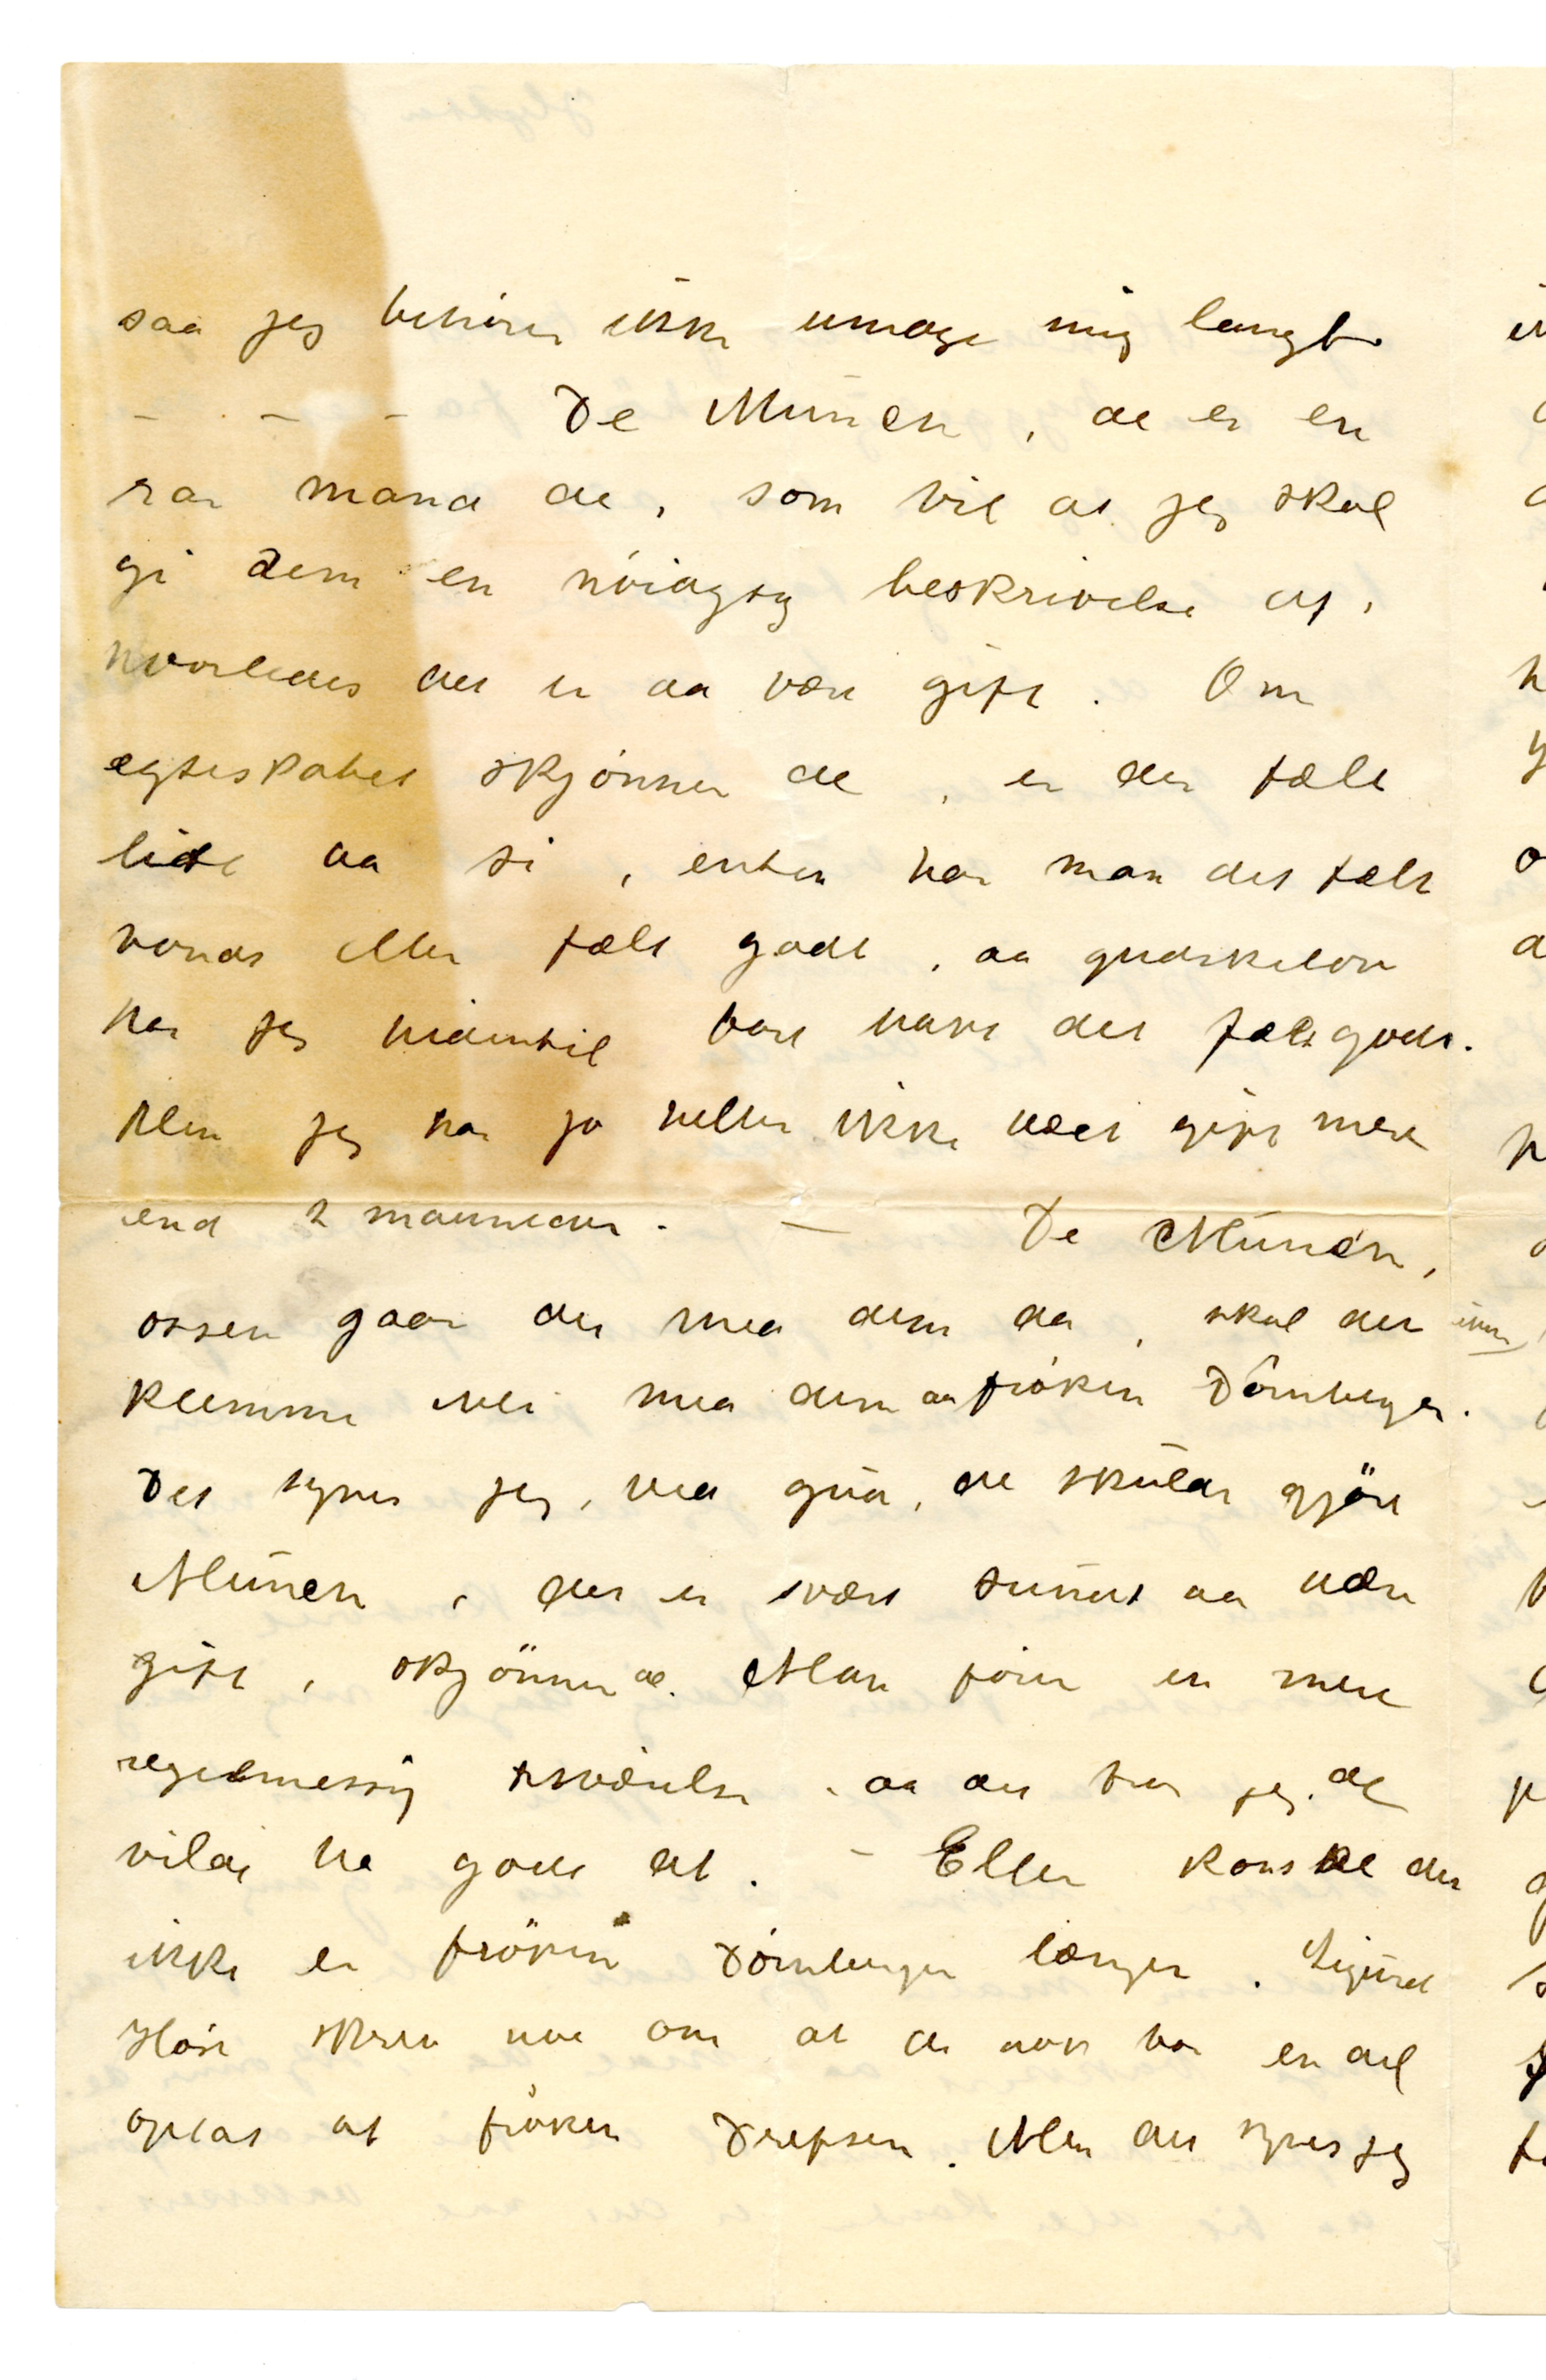 saa jeg behöver ikke umage mig langt.
— — — De Munch, de er en
rar mand de, som vil at jeg skal
gi dem en nöiagtig beskrivelse af,
hvorledes det er aa være gift. Om
egteskabet skjönner de, er der fælt
lidt aa si, enten har man det fælt
vondt eller fælt godt, aa gudskelov
har jeg hidentil bare havt det fælt godt.
Men jeg har jo heller ikke vært gift mere
end 2 maaneder. — De Munch,
ossen gaar det med dem da, skal det ikke
klemme itel med dem aa fröken Dörnberger.
Det synes jeg, ved gud, de skulde gjöre
Munch, det er svært sundt aa være
gift, skjönner de. Man förer en mere
regelmessig tilværelse, aa det tror jeg de
vilde ha godt af. — Eller kanske det
ikke er fröken Dörnberger længer. Sigurd
Höst skrev noe om at de nok var en del
optat af fröken Drefsen. Men det synes jeg